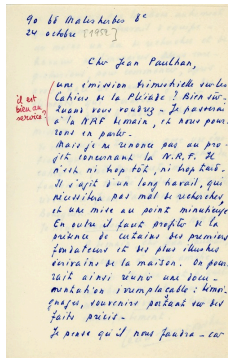 90 bd Malesherbes 8e
24 octobre [1952]
Cher Jean Paulhan,
une émission trimestrielle sur les
Cahiers de la Pléiade ? Bien sûr.
Quand vous voudrez - Je passerai
à la NRF demain, et nous pour-
rons en parler.
il est
bien au
service ?
Mais je ne renonce pas au pro-
jet concernant la N.R.F. Il
n'est ni trop tôt, ni trop tard.
Il s'agit d'un long travail, qui
nécessitera pas mal de recherches,
et une mise au point minutieuse
En outre il faut profiter de la
présence de certains des premiers
fondateurs et des plus illustres
écrivains de la maison. On pour-
rait ainsi réunir une docu-
mentation irremplaçable : témoi-
gnages, souvenirs portant sur des
faits précis -
Je pense qu'il nous faudra - car